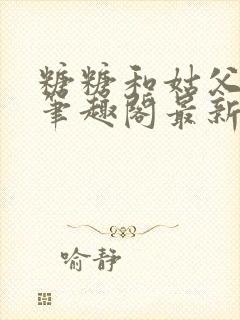 糖糖和姑父
笔趣阁最新
喻静